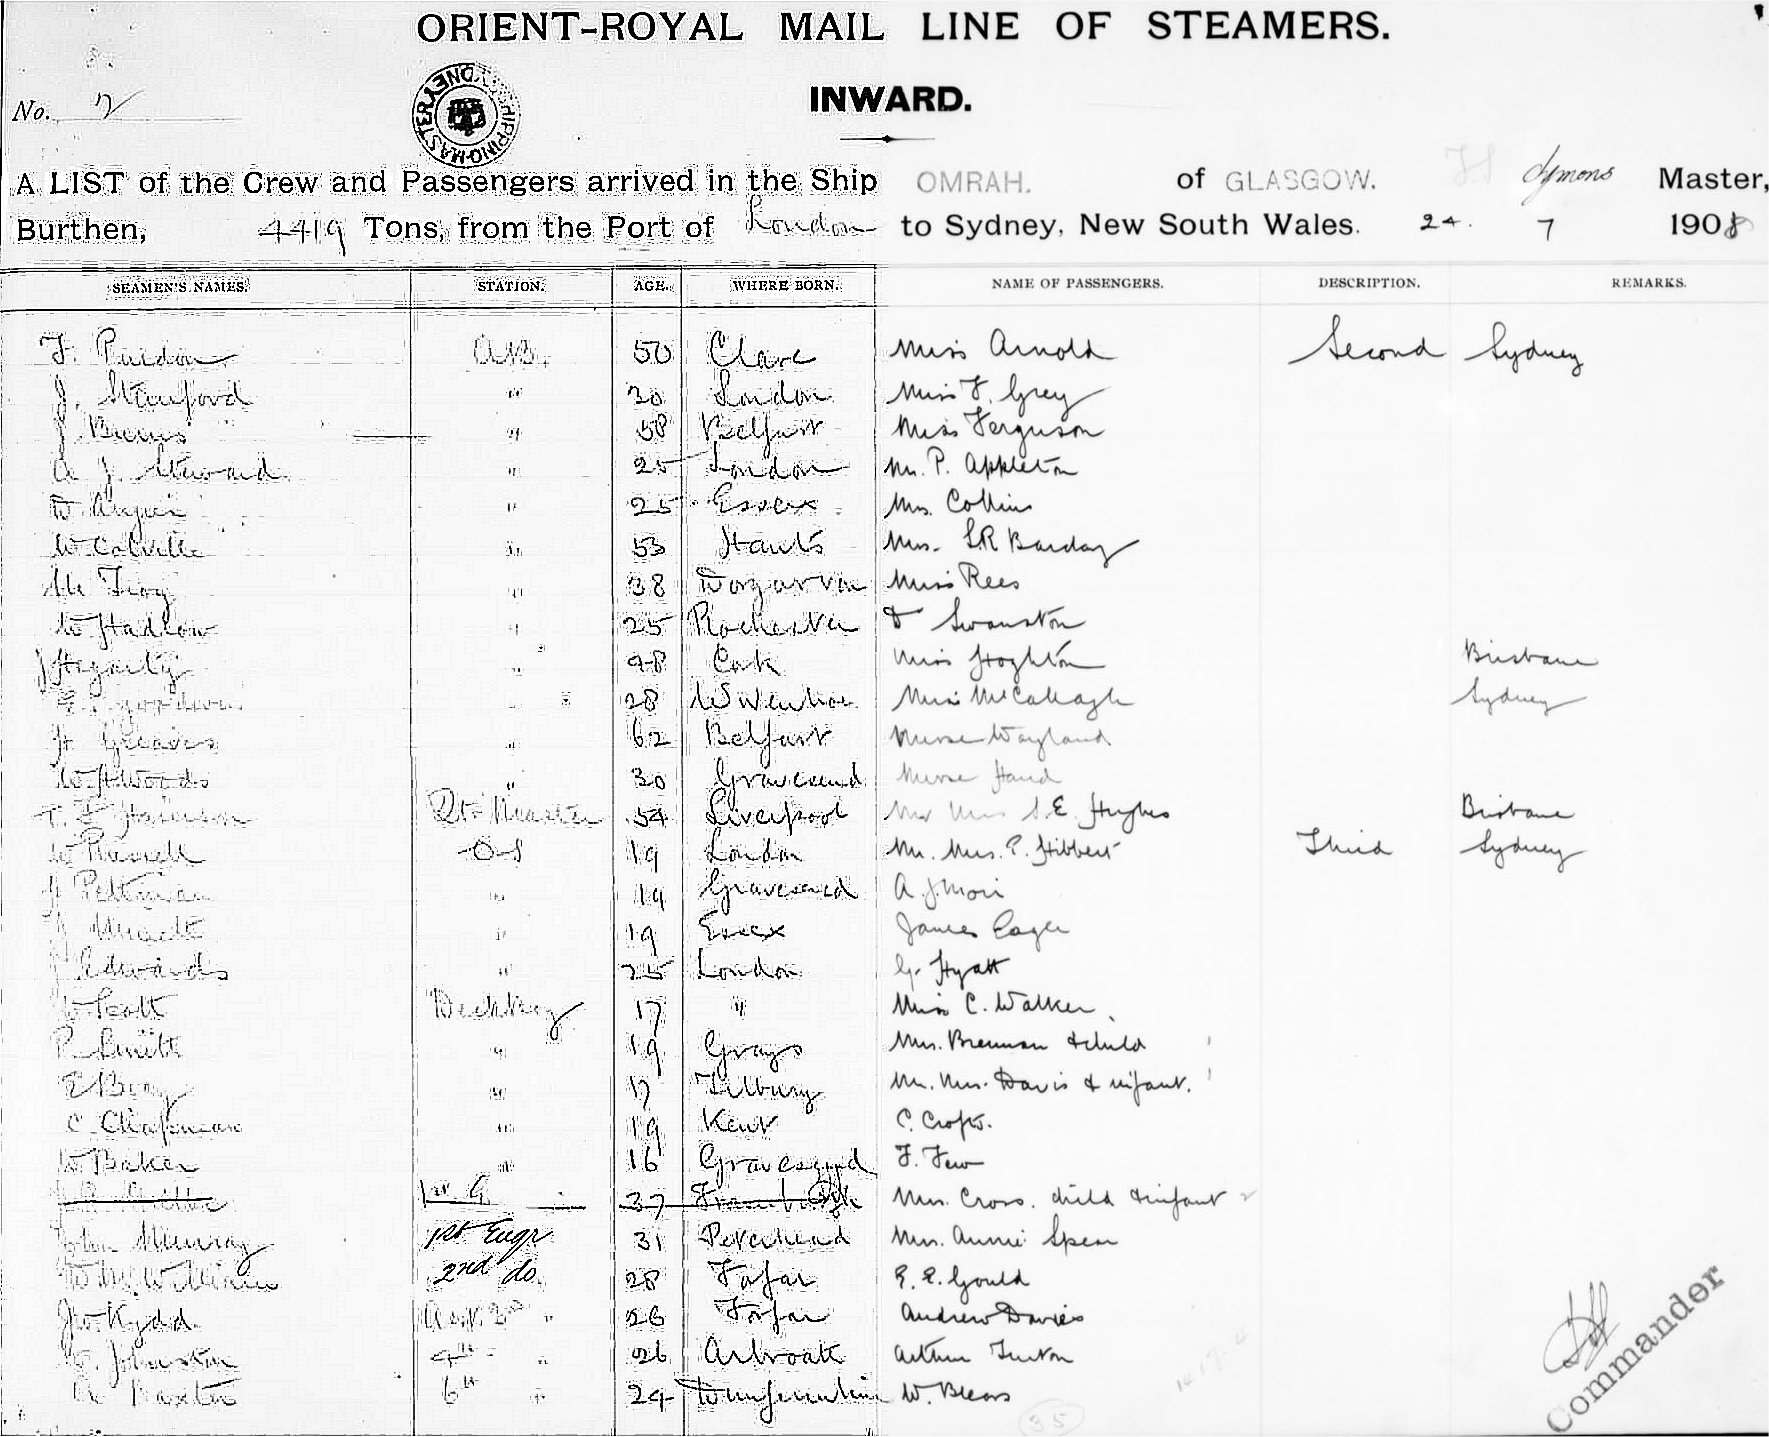 ORIENT-ROYAL MAIL LINE OF STEAMERS.
No. 2
SHIPPING MASTER SYDNEY
INWARD.
A LIST of the Crew and Passengers arrived in the Ship OMRAH. of GLASGOW. Symons Master,
Burthen, 4419 Tons, from the Port of London to Sydney, New South Wales. 24. 7 1908
SEAMEN'S NAMES. STATION. AGE. WHERE BORN. NAME OF PASSENGERS. DESCRIPTION. REMARKS.
F. Purdon A.B. 50 Clare Miss Arnold Second Sydney
J. Stanford " 30 London Miss F. Grey
J. " 58 Belfast Miss Ferguson
A. J. Steward " 25 London Mr. P. Appleton
D. " 25 Essex Mrs. Collins
W. Colville " 53 Hants Mrs. S R Barclay
M. Troy " 38 Dungarvan Miss Rees
W. Hadlow " 25 Rochester & Swanston
J Hegarty " 48 Cork Miss Hoghton Brisbane
" 28 Wivenhoe Miss Sydney
H. Greaves " 62 Belfast Nurse Wayland
W. H. Woods " 30 Gravesend Nurse Hand
T. F. Harrison Qr. Master 54 Liverpool Mr Mrs S. E. Hughes Brisbane
W. Russell O.S 19 London Mr. Mrs. E. Hibbert Third Sydney
Peltman " 19 Gravesend A. J. Moir
" 19 Essex James Eagle
J. Edwards " 25 London G. Hyatt
W. Scott Deck Boy 17 " Miss C. Walker
P. Smith " 19 Grays Mrs. Brennan & child
E Bray " 17 Tilbury Mr. Mrs. Davis & infant.
C. Chapman " 19 Kent C. Crofts.
W. Baker " 16 Gravesend F. Few
37 Mrs. Cross. child & infant
John Murray 1st Engr 31 Peterhead Mrs. Annie Spear
W. McWilliam 2nd do. 28 Forfar E. E. Gould
Kydd 26 Forfar Andrew Davies
Johnston 4th " 26 Arbroath Arthur Turton
A Baxter 6th " 24 Dunfermline W. Blears
35
Commander